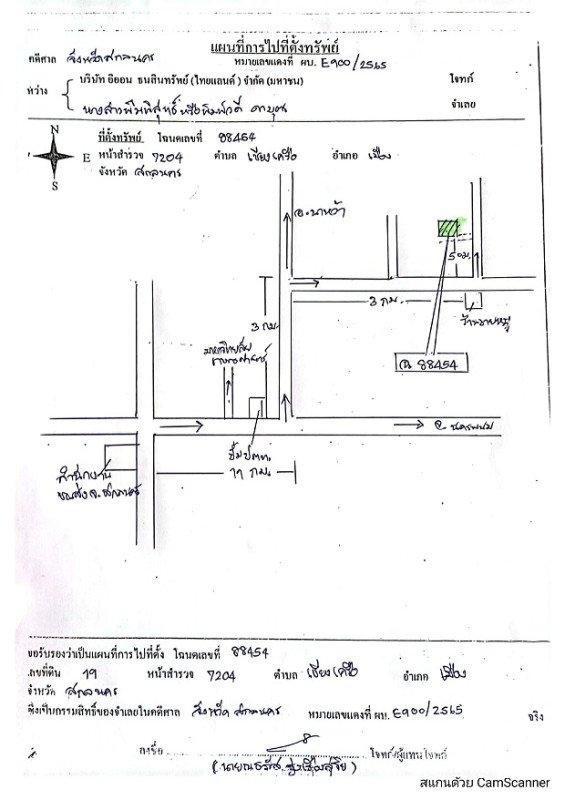 แผนที่การไปที่ตั้งทรัพย์
คดีศาล จังหวัดสกลนคร หมายเลขแดงที่ ผบ. E900/2565
ระหว่าง บริษัท อิออน ธนสินทรัพย์ (ไทยแลนด์) จำกัด (มหาชน) โจทก์
จำเลย
N
E
S
ที่ตั้งทรัพย์ โฉนดเลขที่ 88454
หน้าสำรวจ 7204 ตำบล เชียงเครือ อำเภอ เมือง
จังหวัด สกลนคร
อ.นาหว้า
50ม.
3 กม.
3 กม.
ฉ 88454
มหาวิทยาลัย
เกษตรศาสตร์
จ. นครพนม
ปั๊มปตท.
สำนักงาน
ขนส่ง จ. สกลนคร
19 กม.
ขอรับรองว่าเป็นแผนที่การไปที่ตั้ง โฉนดเลขที่ 88454
เลขที่ดิน 19 หน้าสำรวจ 7204 ตำบล เชียงเครือ อำเภอ เมือง
จังหวัด สกลนคร
ซึ่งเป็นกรรมสิทธิ์ของจำเลยในคดีศาล จังหวัด สกลนคร หมายเลขแดงที่ ผบ. E900/2565 จริง
ลงชื่อ โจทก์/ผู้แทนโจทก์
สแกนด้วย CamScanner